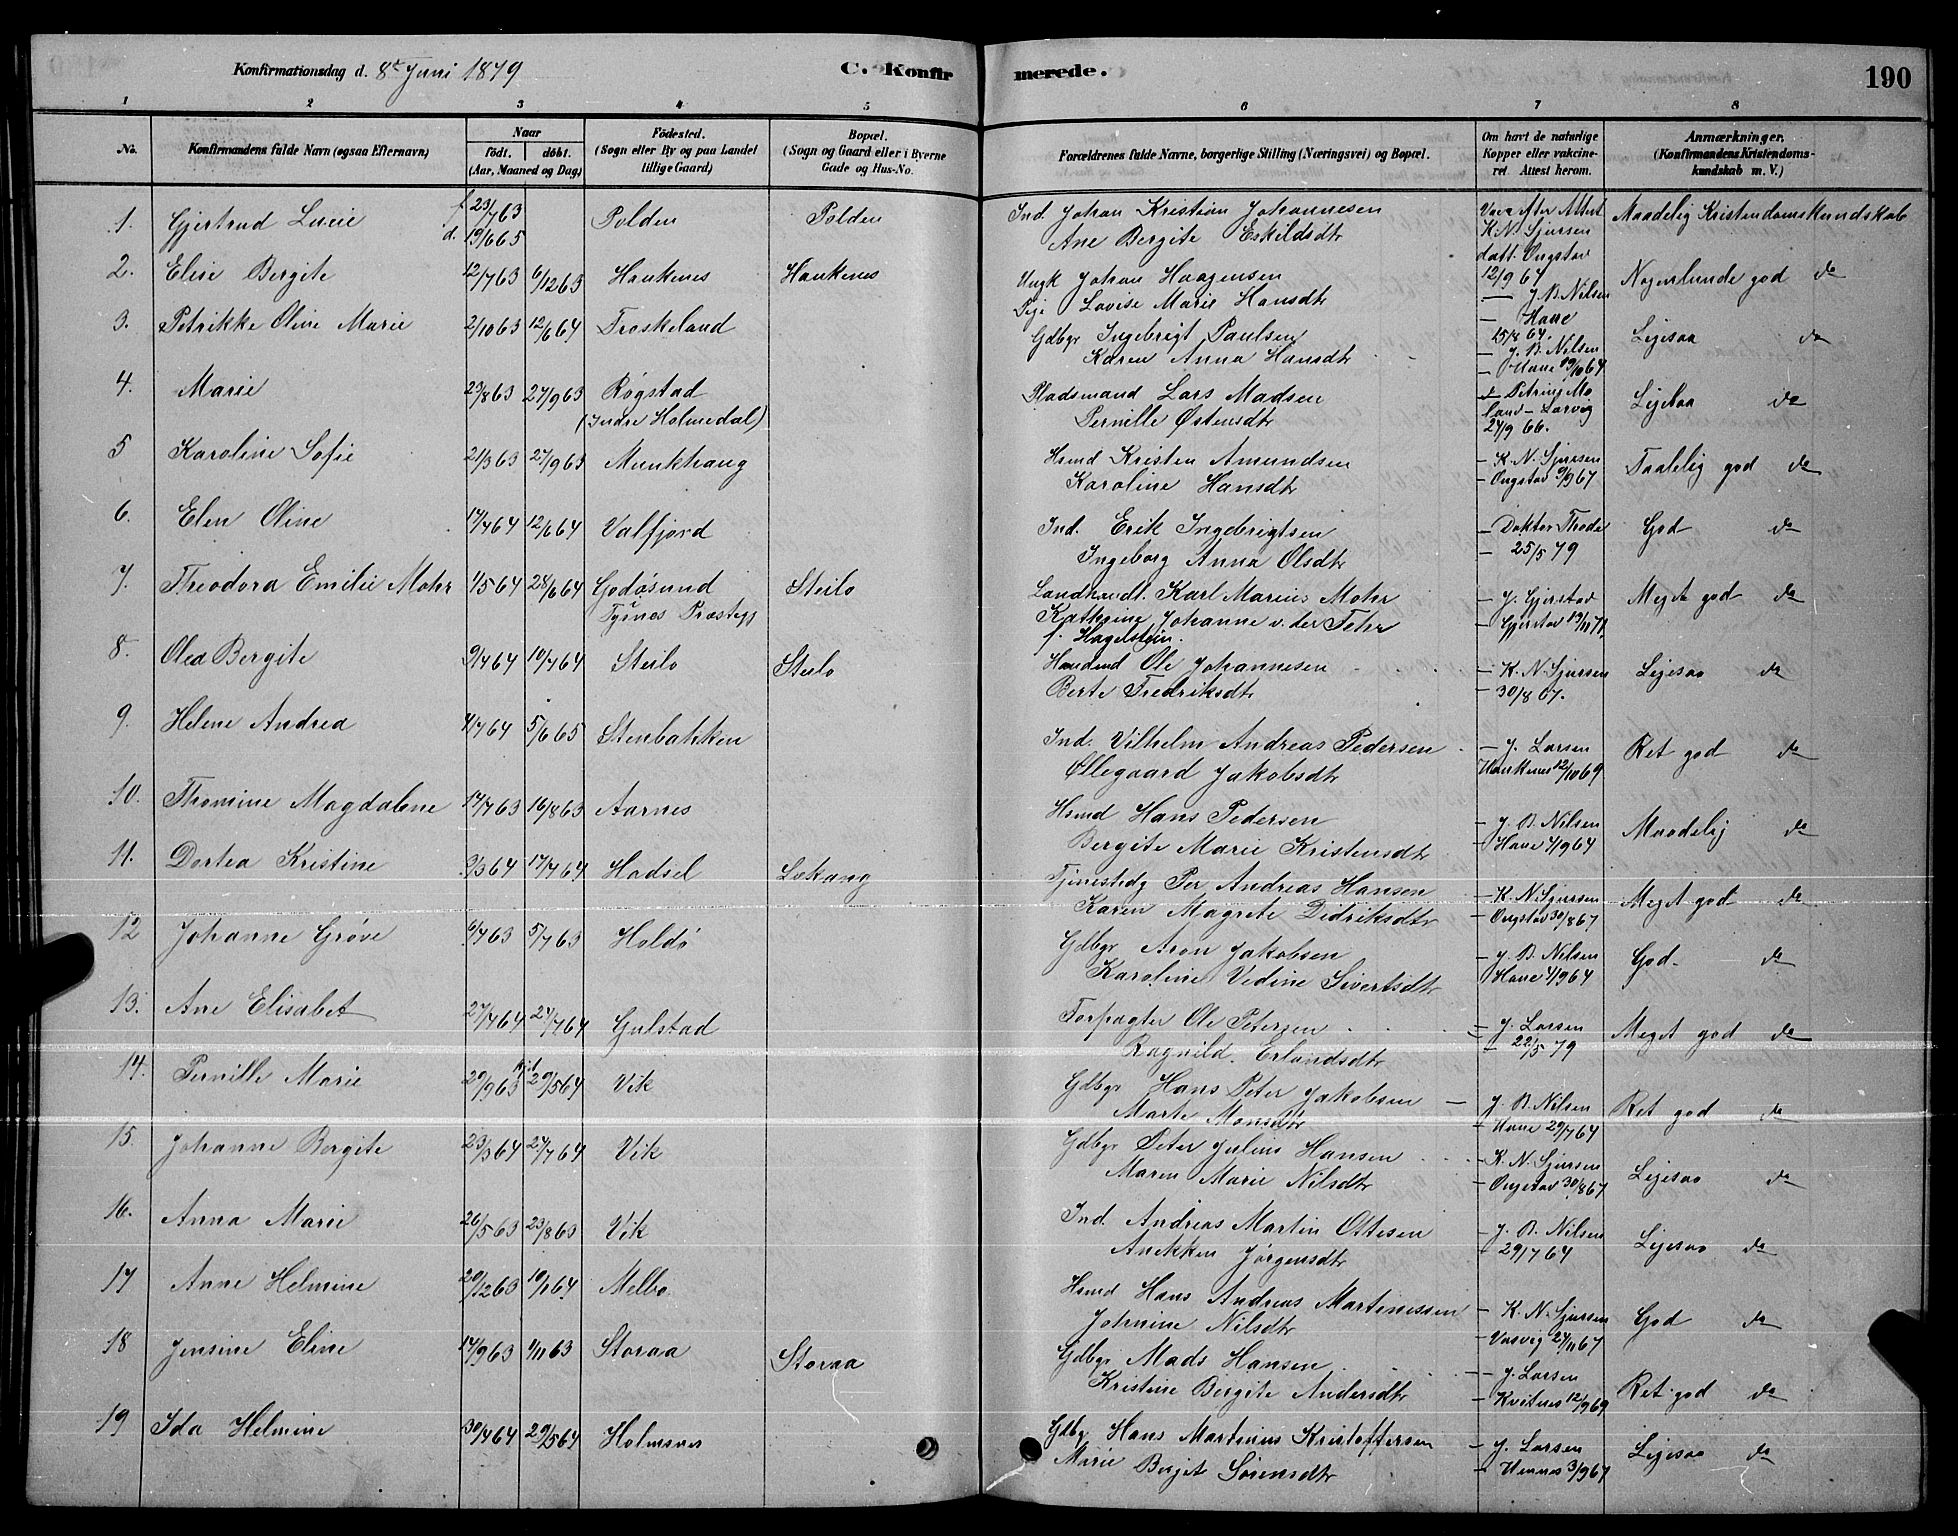 Konfirmationsdag d. 8de Juni 1879
C. Konfirmerede.
190
1 2 3 4 5 6 7 8
No. Konfirmandens fulde Navn (ogsaa Efternavn) Naar födt. döbt. (Aar, Maaned og Dag) Födested. (Sogn eller By og paa Landet tillige Gaard) Bopæl. (Sogn og Gaard eller i Byerne Gade og Hus-No. Forældrenes fulde Navne, borgerlige Stilling (Næringsvei) og Bopæl. Om havt de naturlige Kopper eller vakcineret. Attest herom. Anmærkninger. (Konfirmandens Kristendomskundskab m. V.)
1. Gjertrud Lucie f 23/7 63 d. 19/6 65 Polden Polden Ind. Johan Kristian Johannesen Maadelig Kristendomskundskab
Ane Bergite Eskildsdtr K. N. Sjursen
datt. Ongstad
12/9 64
2. Elise Bergite 12/7 63 6/12 63 Haukenes Haukenes Ungk Johan Haagensen Nogenlunde god do
Pige Lovise Marie Hansdtr — J. B. Nilsen
— Haue
15/8 64.
3. Petrikke Oline Marie 2/10 63 12/6 64 Froskeland Gdbgr Ingebrigt Paulsen Ligesaa do
Karen Anna Hansdtr — J. B. Nilsen
— Haue 19/10 64
4. Marie 23/8 63 27/9 63 Røgstad Pladsmand Lars Madsen Ligesaa do
(Indre Holmedal) Pernille Østensdtr
Larvig
27/9 66.
5 Karoline Sofie 21/3 63 27/9 63 Munkhaug Hsmd Kristen Amundsen — K. N. Sjursen Taalelig god do
Karoline Hansdtr — Ongstad 9/9 67
6. Elen Oline 17/4 64 12/6 64 Valfjord Ind. Erik Ingebrigtsen — Doktor Thode God do
Ingeborg Anna Olsdtr — 25/5 79
7. Theodora Emilie Mohr 1/5 64 28/6 64 Godøsund Steilo Landhandl. Karl Marius Mohr — J. Gjerstad Meget god do
Tysnes Præstegj Kathrine Johanne v. der Fehr — Gjerstad 13/11 71
f. Hagelstein.
8. Olea Bergite 9/4 64 10/7 64 Steilo Steilo Husmd Ole Johannesen — K. N. Sjursen Ligesaa do
Berte Fredriksdtr — 30/8 67.
9. Helene Andrea 4/7 64 5/6 65 Stenbakken Ind. Vilhelm Andreas Pedersen — J. Larsen Ret god do
Øllegaard Jakobsdtr Haukenes 12/10 69
10. Thomine Magdalene 17/7 63 16/8 63 Aarnes Hsmd Hans Pedersen — J. B. Nilsen Maadelig do
Bergite Marie Kristensdtr — Haue 4/9 64
11. Dortea Kristine 9/3 64 17/7 64 Hadsel Lekang Tjenestedg Per Andreas Hansen — K. N. Sjursen Meget god do
Karen Magrete Didriksdtr — Ongstad 30/8 67
12 Johanne Grøve 6/4 63 5/7 63 Holdø Gdbgr Aron Jakobsen — J. B. Nilsen God do
Karoline Vedine Sivertsdtr — Haue 4/9 64
13. Ane Elisabet 27/4 64 24/7 64 Gulstad Forpagter Ole Petersen — J. Larsen Meget god do
Ragnild Erlandsdtr — 22/5 79
14. Pernille Marie 29/9 63 29/5 64 Vik Gdbgr Hans Peter Jakobsen — J. B. Nilsen Ret god do
Marte Monsdtr — Haue 29/7 64
15. Johanne Bergite 23/3 64 24/7 64 Vik Gdbgr Peter Julius Hansen — K. N. Sjursen Ligesaa do
Maren Marie Nilsdtr — Ongstad 30/8 67
16. Anna Marie 26/5 63 23/8 63 Vik Ind. Andreas Martin Ottesen — J. B. Nilsen Ligesaa do
Anekken Jørgensdtr — 29/7 64
17 Anne Helmine 20/12 63 10/1 64 Melbo Hsmd Hans Andreas Martinussen — K. N. Sjursen God do
Johnine Nilsdtr — Vasvig 27/11 67
18 Jensine Eline 14/9 63 1/11 63 Storaa Storaa Gdbgr Mads Hansen — J. Larsen Ret god do
Kristine Bergite Andersdtr — Kvitnes 12/9 69
19 Ida Helmine 30/4 64 29/5 64 Holmsnes Gdbg Hans Martinius Kristoffersen — J. Larsen Ligesaa do
Marie Bergit Sørensdtr — Hennes 3/9 67